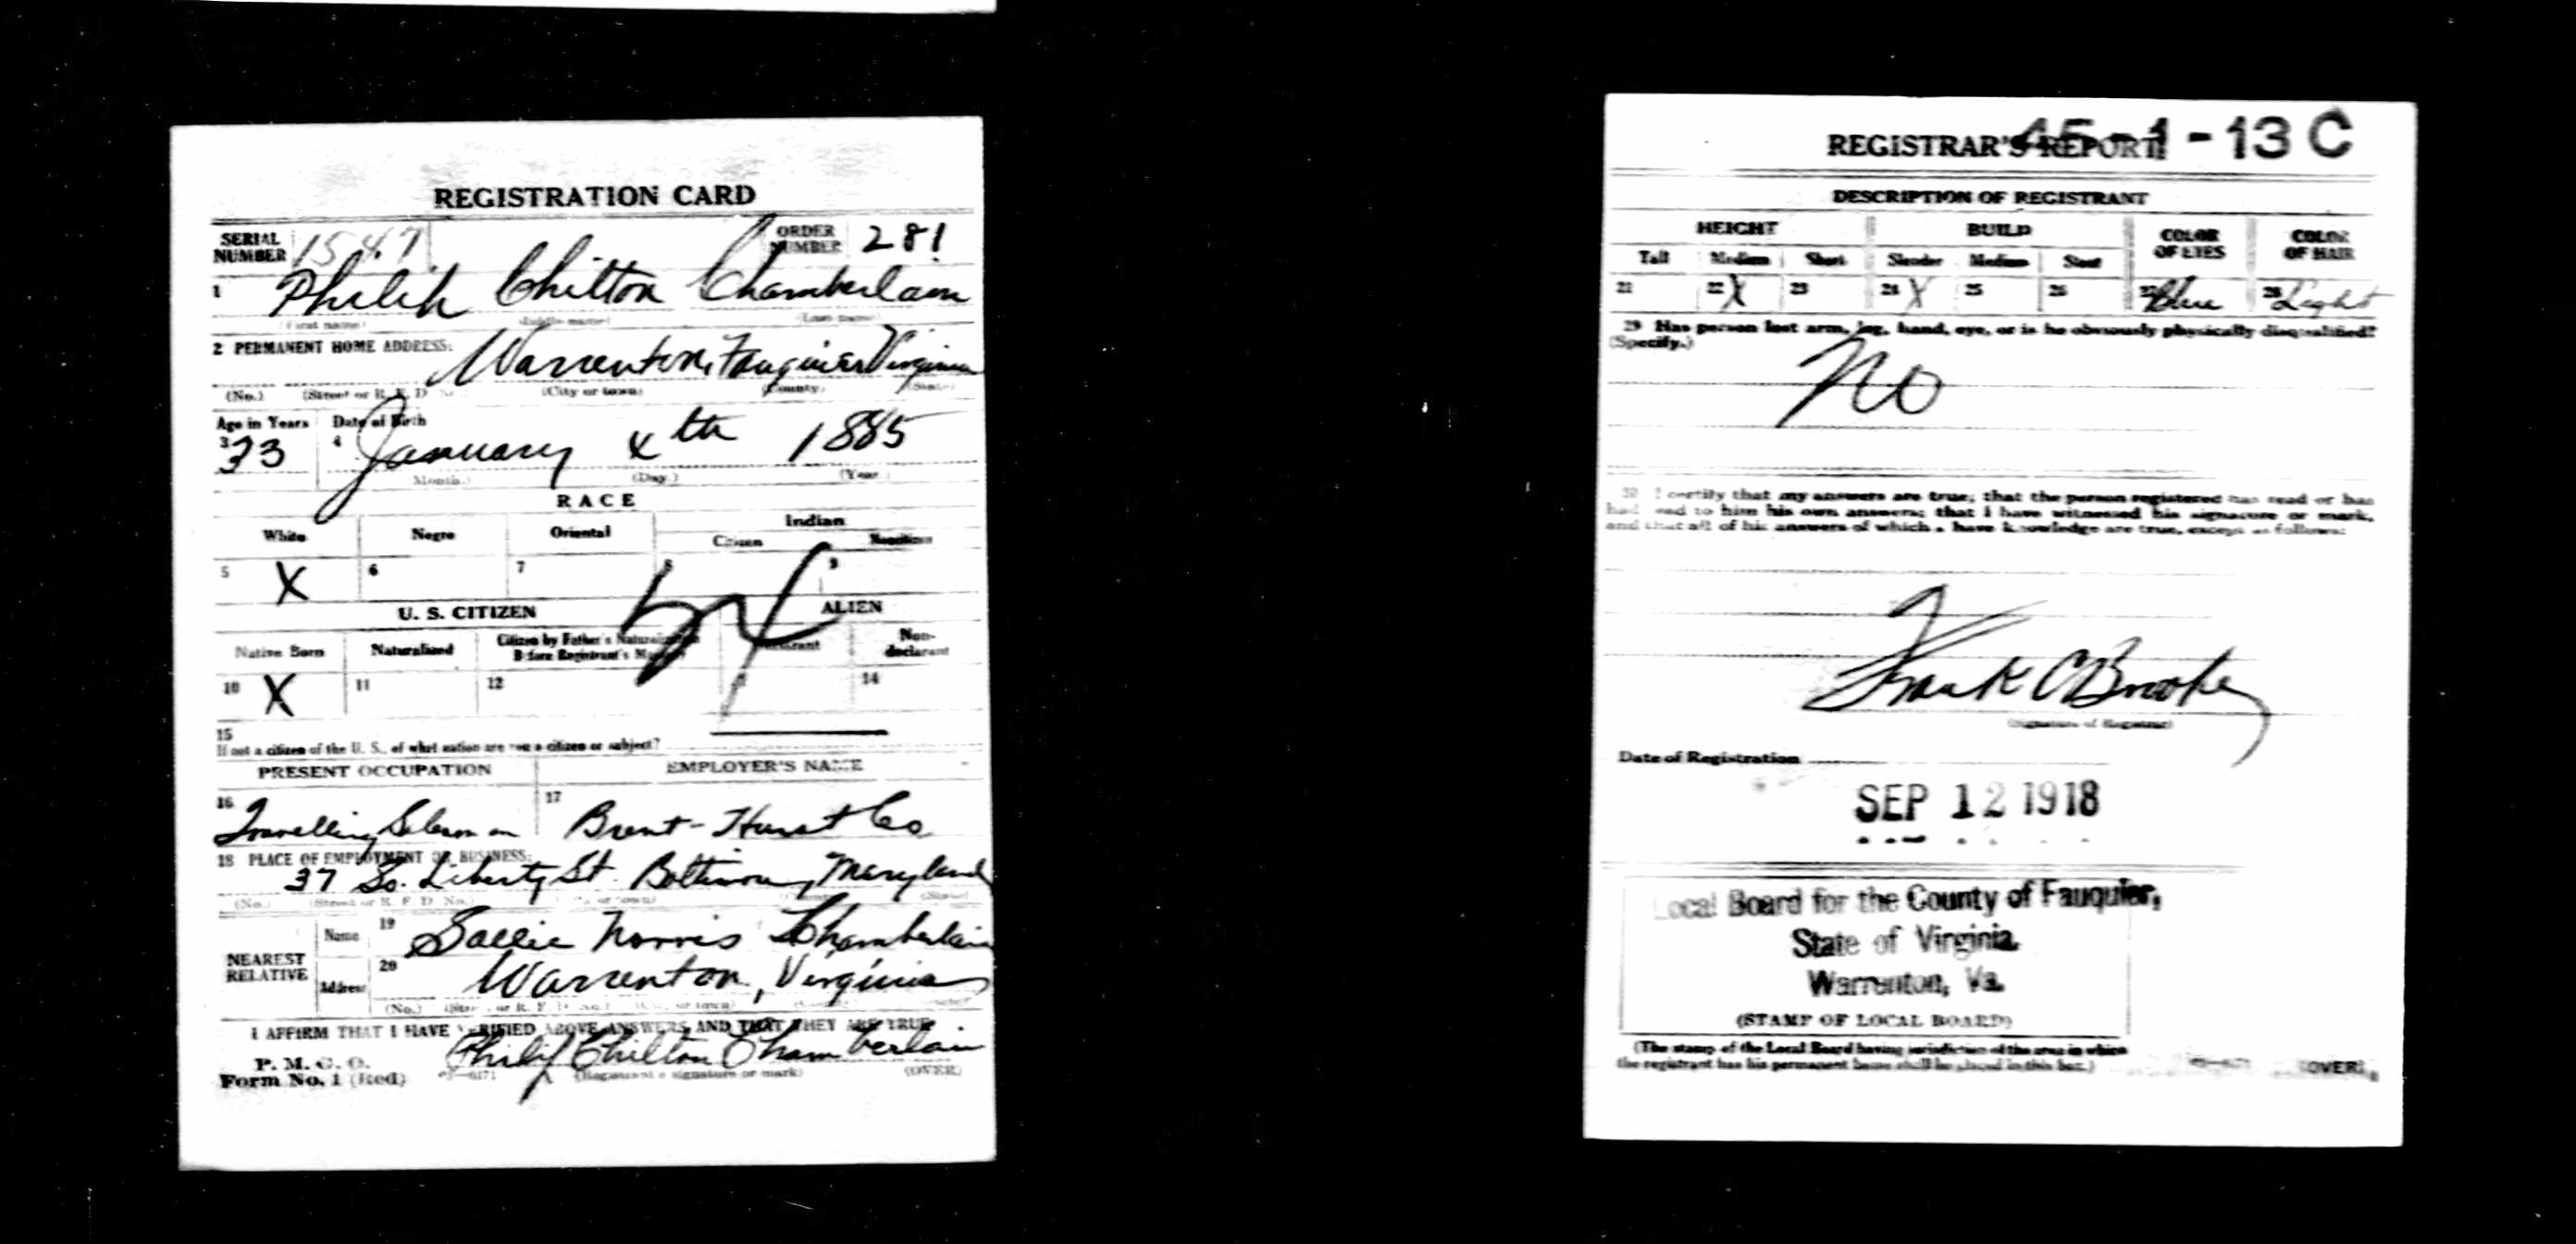 REGISTRATION CARD
SERIAL NUMBER 1547 ORDER NUMBER 281
1 Philip Chitton Chamberlain
(First name) (Middle name) (Last name)
2 PERMANENT HOME ADDRESS: Warrenton, Fauquier Virginia
(No.) (Street or R. F. D. No.) (City or town) (County) (State)
Age in Years Date of Birth
3 33 4 January 4th 1885
(Month.) (Day.) (Year.)
RACE
White Negro Oriental Indian
Citizen Noncitizen
5 X 6 7 8 9
U. S. CITIZEN ALIEN
Native Born Naturalized Citizen by Father's Naturalization Before Registrant's Majority Declarant Non-declarant
10 X 11 12 14
15
If not a citizen of the U. S., of what nation are you a citizen or subject?
PRESENT OCCUPATION EMPLOYER'S NAME
16 Travelling Salesman 17 Brent-Hurst Co
18 PLACE OF EMPLOYMENT OR BUSINESS:
37 So. Liberty St. Baltimore, Maryland
(No.) (Street or R. F. D. No.) (City or town) (County) (State)
NEAREST RELATIVE Name 19 Sallie Norris Chamberlain
Address 20 Warrenton, Virginia
(No.) (Street or R. F. D. No.) (City or town)
I AFFIRM THAT I HAVE VERIFIED ABOVE ANSWERS AND THAT THEY ARE TRUE.
P. M. G. O.
Form No. 1 (Red) Philip Chilton Chamberlain
(Registrant's signature or mark) (OVER)
REGISTRAR'S REPORT 45-1-13 C
DESCRIPTION OF REGISTRANT
HEIGHT BUILD COLOR OF EYES COLOR OF HAIR
Tall Medium Short Slender Medium Stout
21 22 X 23 24 X 25 26 27 Blue 28 Light
29 Has person lost arm, leg, hand, eye, or is he obviously physically disqualified?
(Specify.)
No
30 I certify that my answers are true; that the person registered has read or has
had read to him his own answers; that I have witnessed his signature or mark,
and that all of his answers of which I have knowledge are true, except as follows:
Frank C Brooke
(Signature of Registrar)
Date of Registration
SEP 12 1918
Local Board for the County of Fauquier,
State of Virginia
Warrenton, Va.
(STAMP OF LOCAL BOARD)
(The stamp of the Local Board having jurisdiction of the area in which
the registrant has his permanent home shall be placed in this box.)
(OVER)